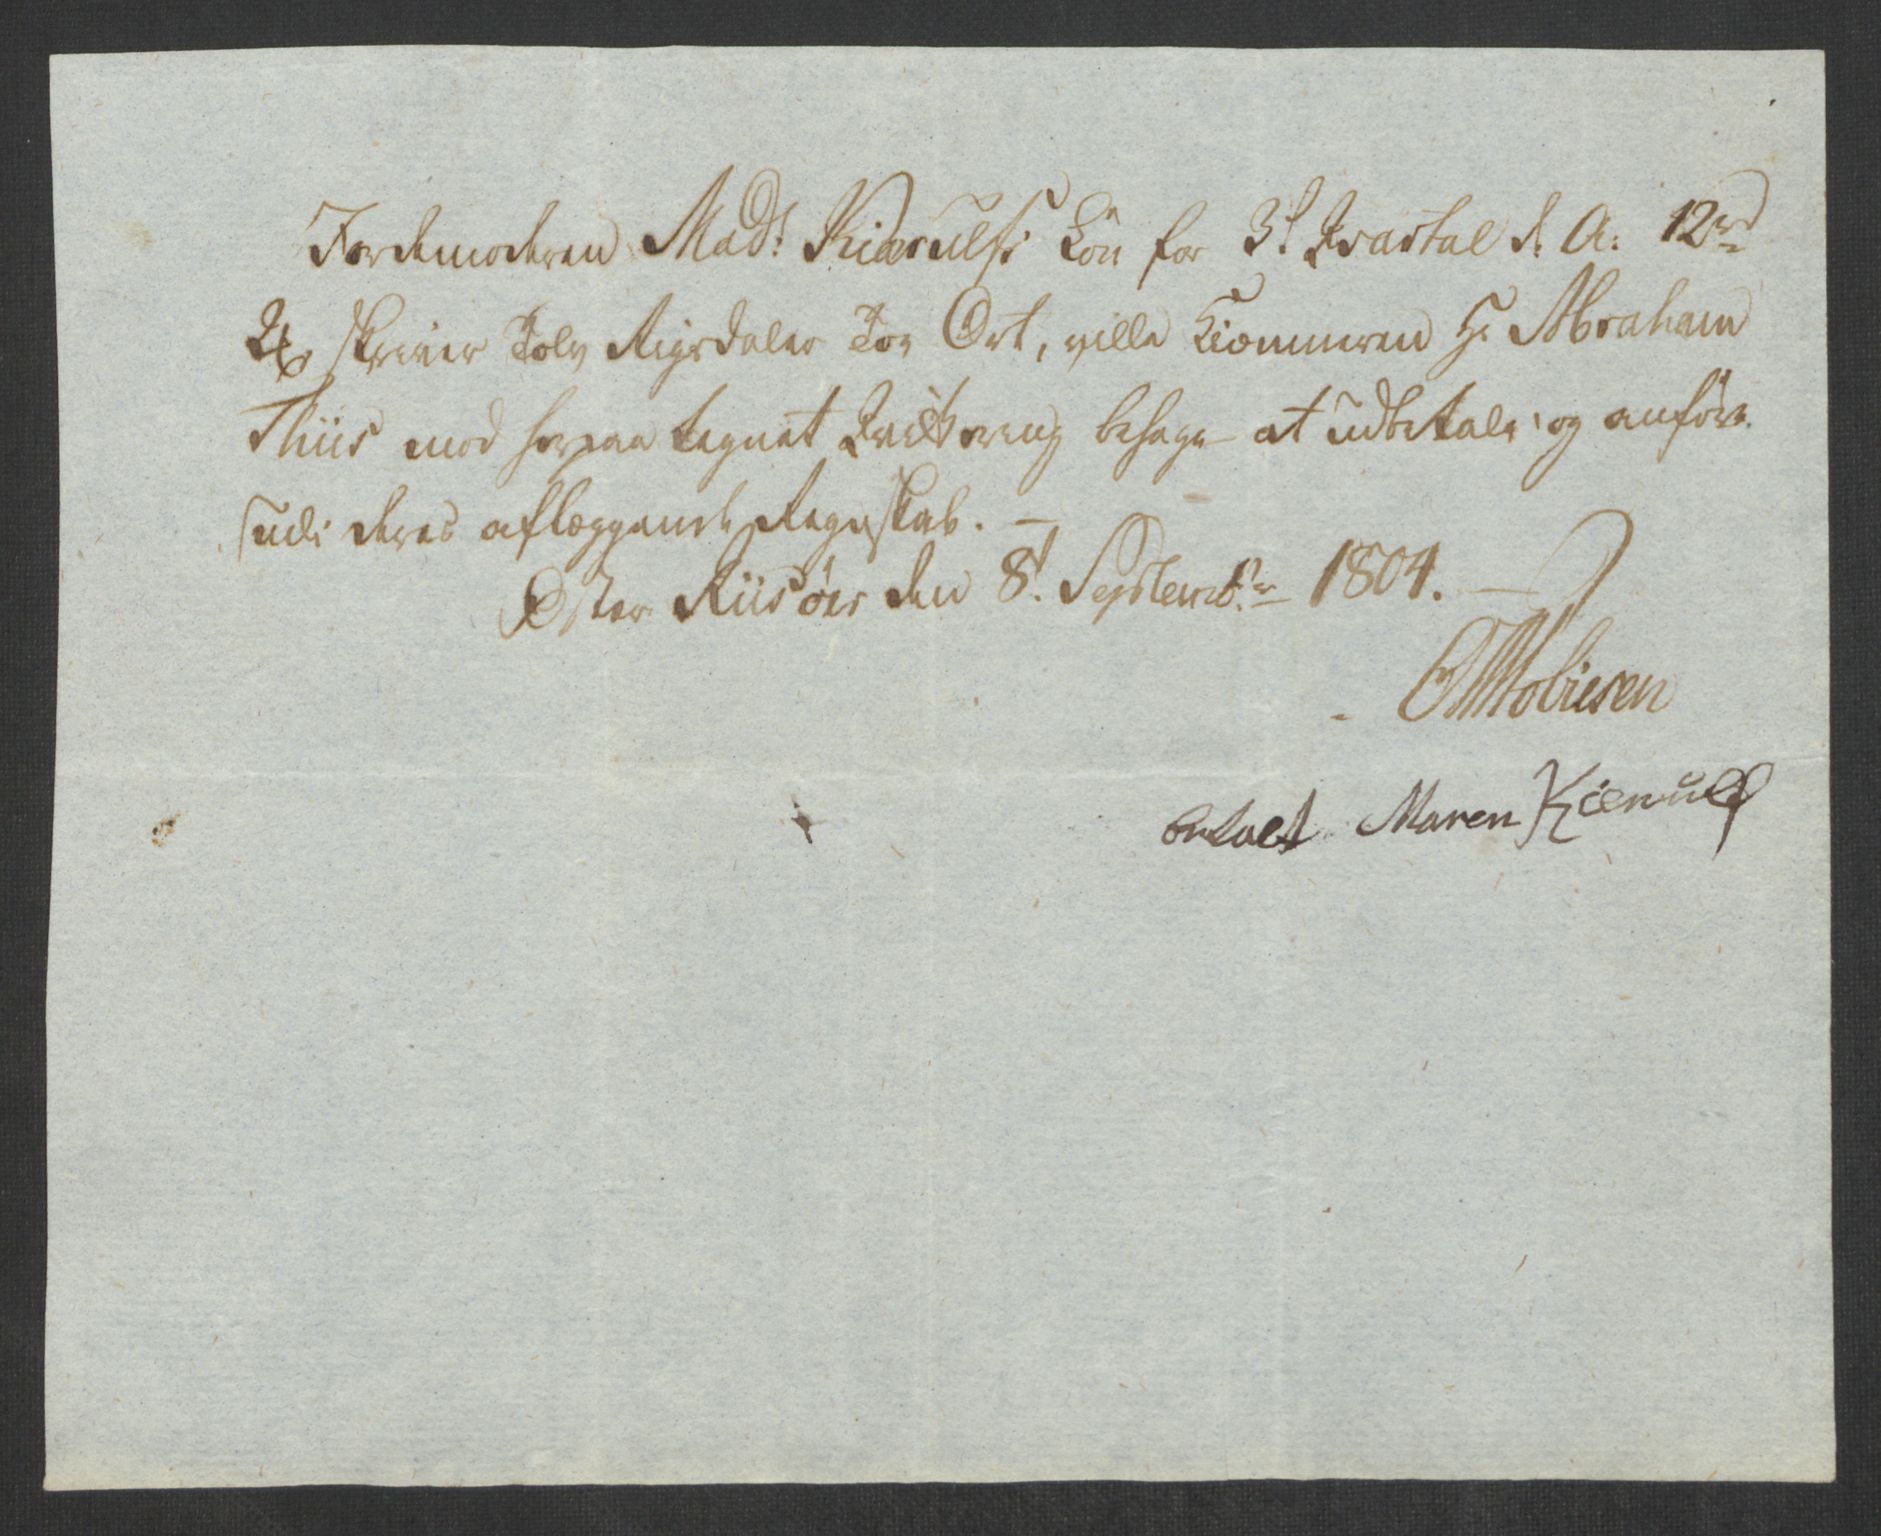 Jordemoderen Mad: Kierulfs Lön for 3d Qvartal d: A: 12rd
2 # skriver Tolv Rigsdaler Toe Ort, ville Kiæmneren Hr Abraham
Thiis mod herpaa tegnet Qvittering behage at udbetale og anföre
udi deres aflæggende Regnskab. —
Øster Riisöer den 8d Septembr 1804. —
Mobiesen
betalt Maren Kierulf